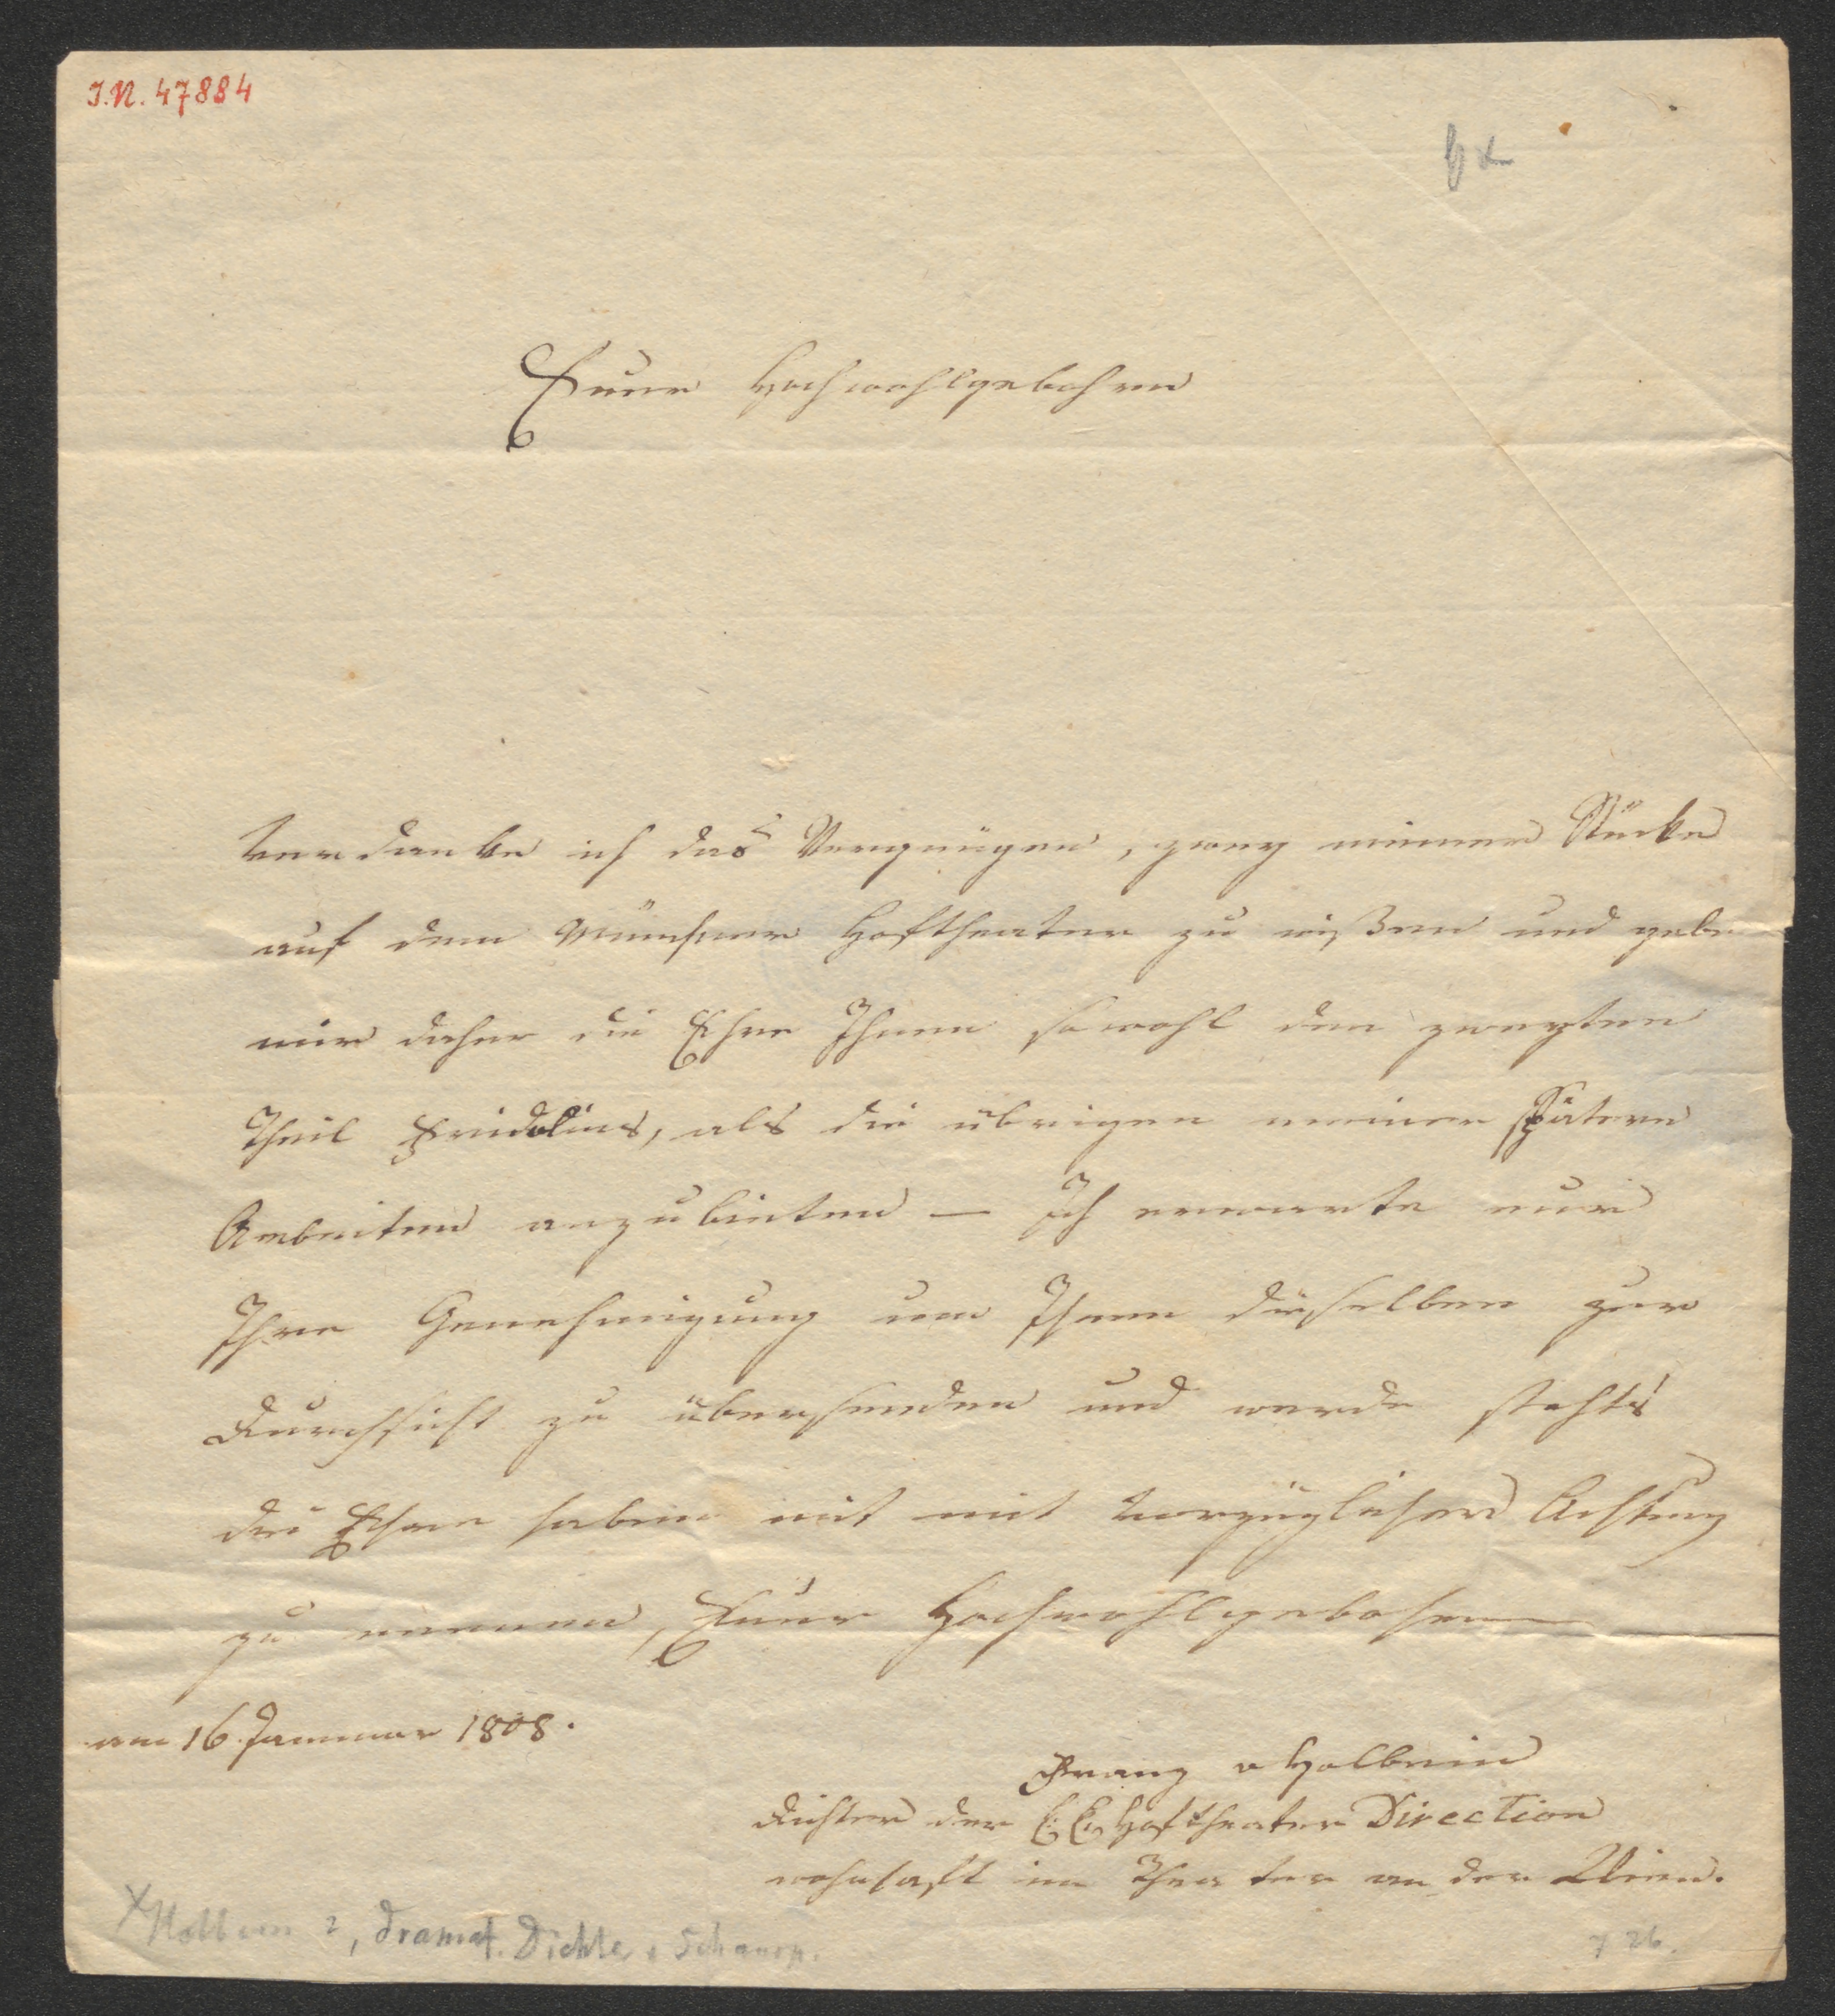 I.N. 47884
Euer Hochwohlgebohren
verdanke ich das Vergnügen, zwey meiner Stücke
auf dem Münchner Hoftheater zu wißen und gebe
mir daher die Ehre Ihnen sowohl den zweyten
Theil Fridolins, als die übrigen meiner spätern
Arbeiten anzubieten — Ich erwarte nur
Ihre Genehmigung um Ihnen dieselben zur
Durchsicht zu übersenden und werde stehts
die Ehre haben mit mit vorzüglicher Achtung
zu nennen, Euer Hochwohlgebohren
am 16 Januar 1808.
Franz v Holbein
Dichter der k. k. Hoftheater Direction
wohnhaft im Theater an der Wien.
Holbein, dramat. Dichter u Schausp.
26.